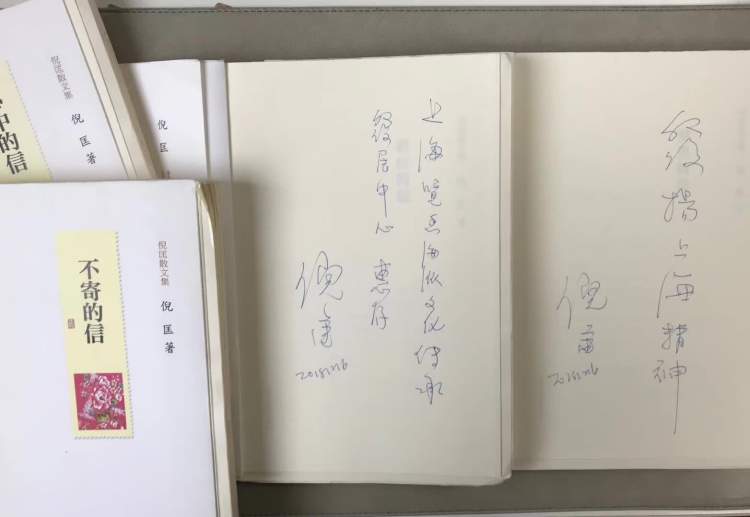 倪匡散文集
倪 匡 著
中的信
倪 匡
倪匡散文集
倪 匡 著
不寄的信
上海海派文化传承
發展中心 惠存
倪匡
發揚上海精神
倪匡